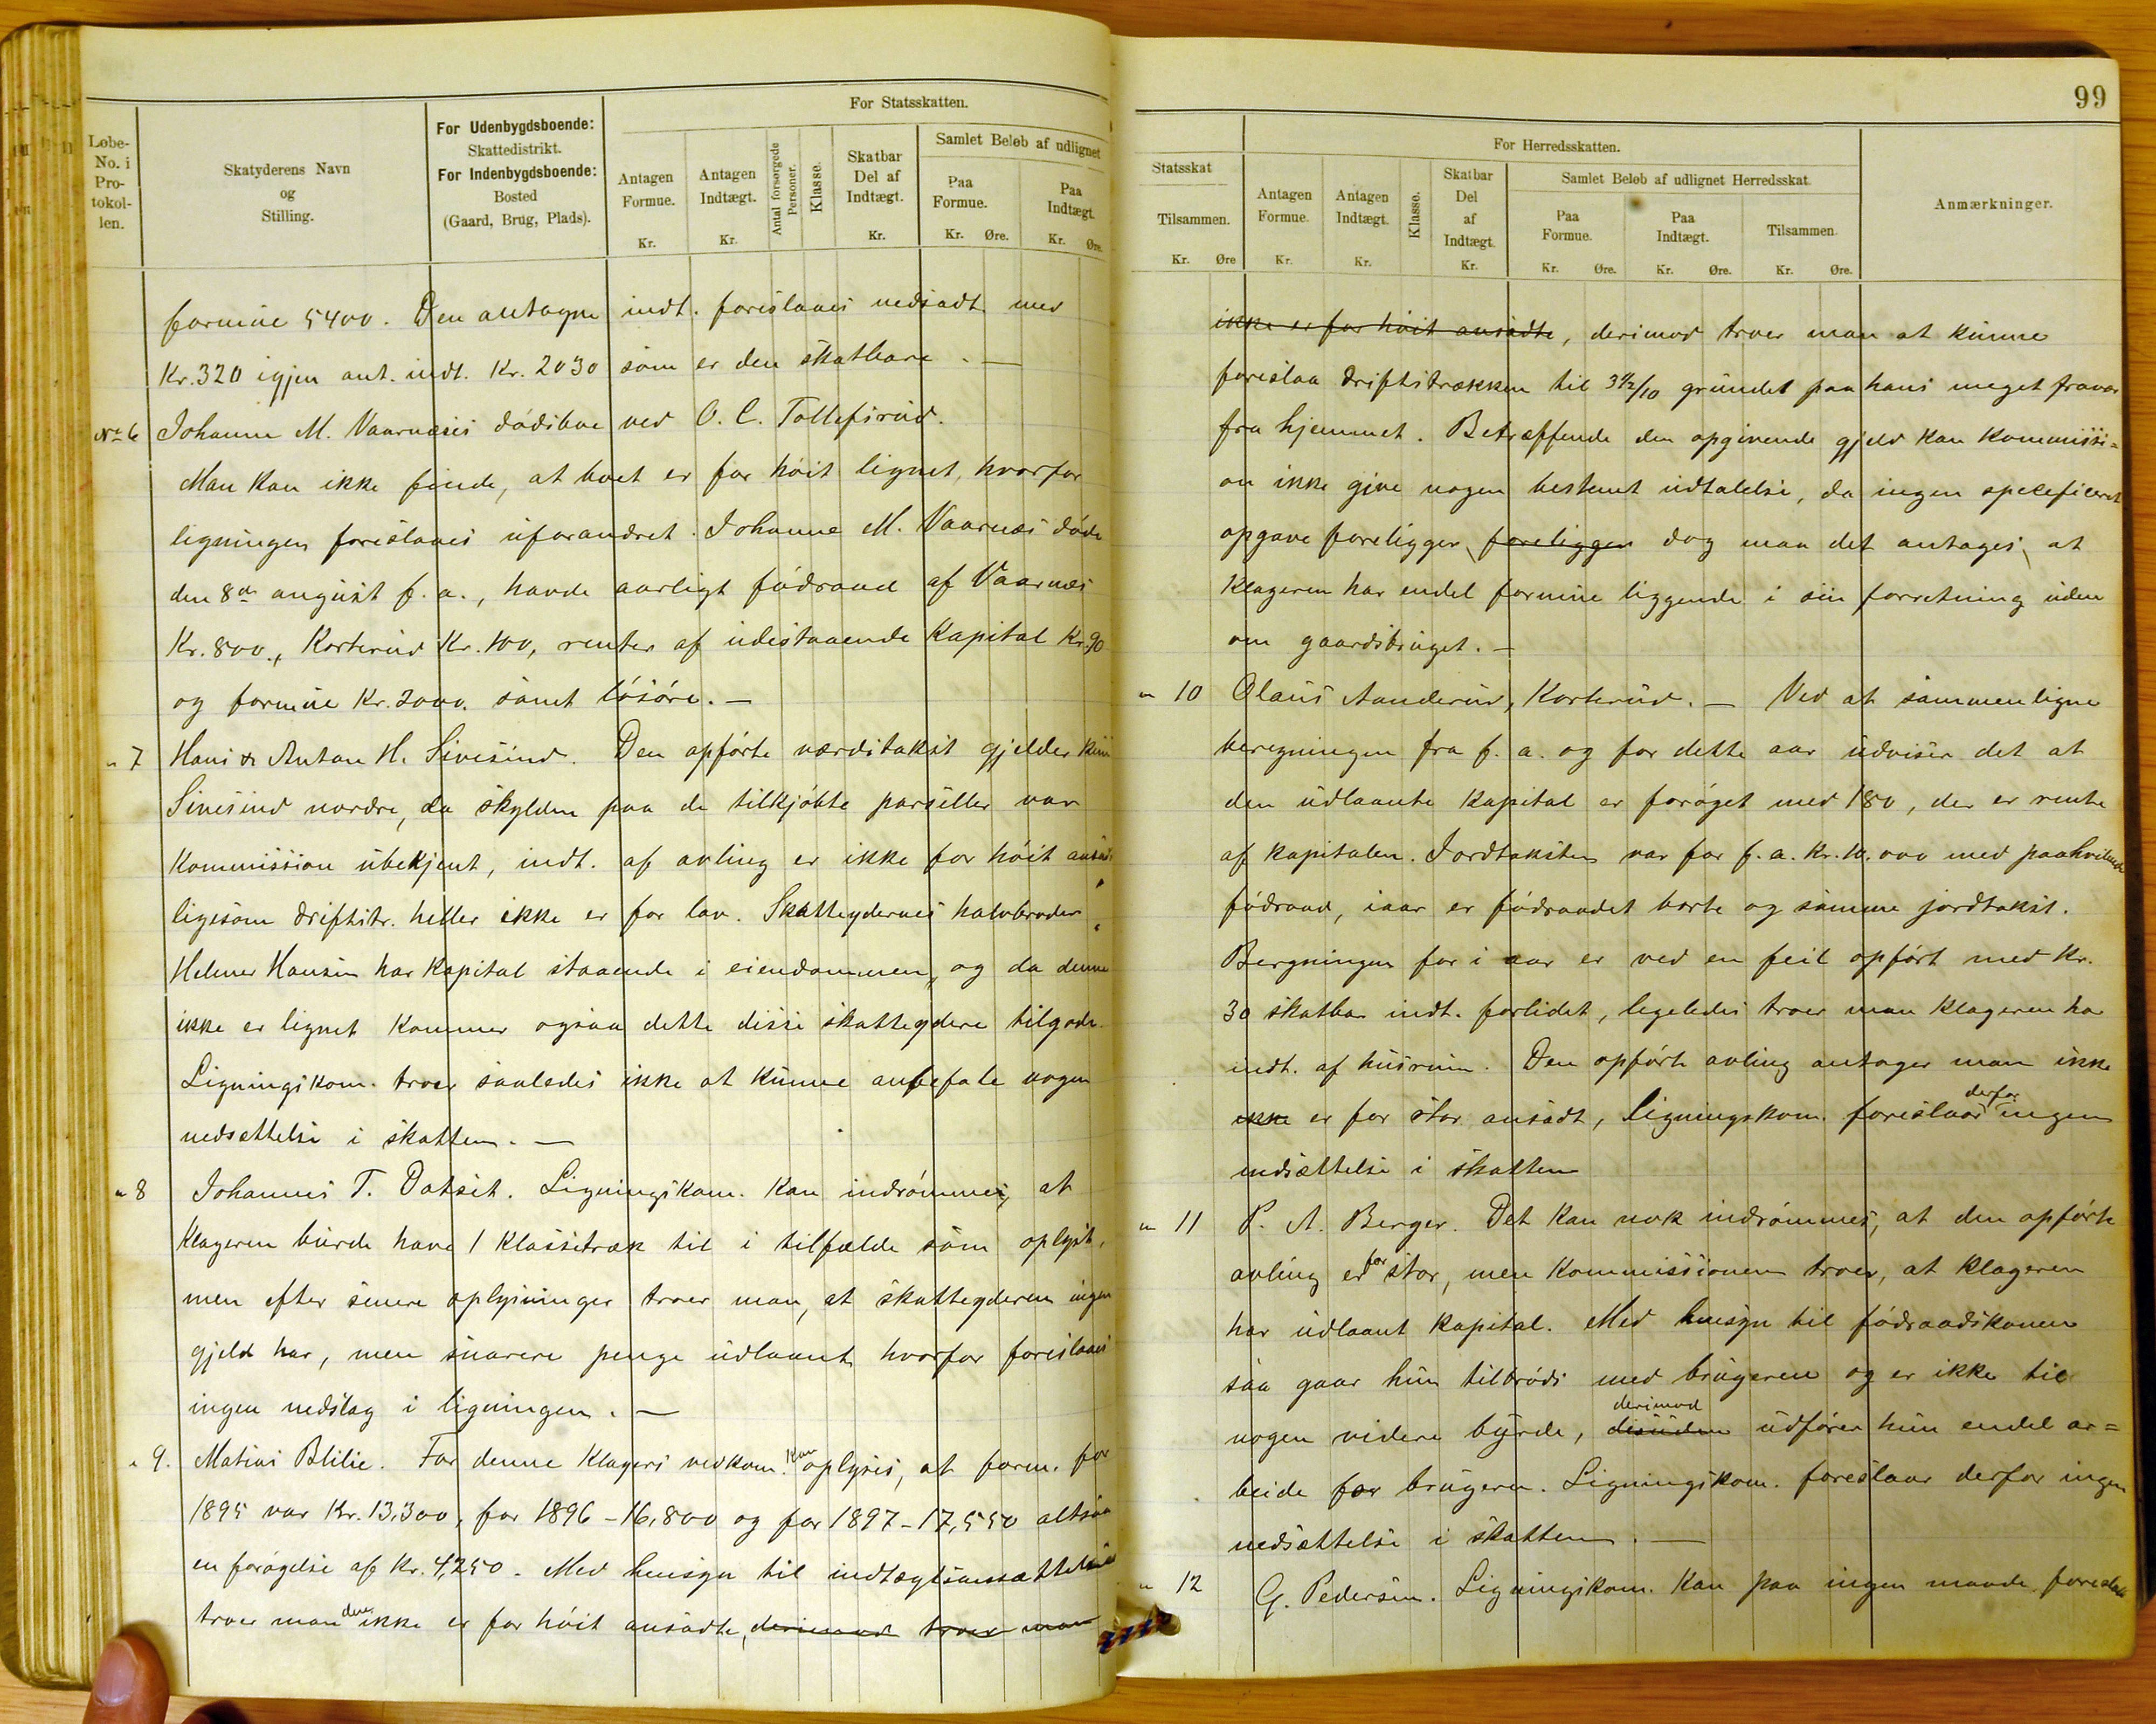 Løbe-No. i Protokollen.
Skatyderens Navn og Stilling.
For Udenbygdsboende: Skattedistrikt. For Indenbygdsboende: Bosted (Gaard, Brug, Plads).
For Statsskatten.
Antagen Formue. Kr.
Antagen Indtægt. Kr.
Antal forsørgede Personer.
Klasse.
Skatbar Del af Indtægt. Kr.
Samlet Beløb af udlignet
Paa Formue. Kr. Øre.
Paa Indtægt. Kr. Øre.
formue 5400. Den antagne indt. foreslaaes nedsadt med
Kr. 320 igjen ant. indt. Kr. 2030 som er den skatbare. —
No 6 Johanne M. Vaarnæses dødsboe ved O. C. Tollefsrud.
Man kan ikke finde, at boet er for høit lignet, hvorfor
ligningen foreslaaes uforandret. Johanne M. Vaarnæs døde
den 8de august f. a., havde aarligt fødraad af Vaarnæs
Kr. 800., Korterud Kr. 100, renter af udestaaende Kapital Kr. 90
og formue Kr. 2000. samt løsøre. —
" 7 Hans & Anton H. Sivesind. Den opførte værditakst gjelder kun
Sivesind nordre, da skylden paa de tilkjøbte parseller var
Kommission ubekjent, indt. af avling er ikke for høit ansadt
ligesom driftstr. heller ikke er for lav. Skatteydernes halvbroder
Helmer Hansen har Kapital staaende i eiendommen, og da denne
ikke er lignet kommer ogsaa dette disse skatteydere tilgode.
Ligningskom. troer saaledes ikke at kunne anbefale nogen
nedsættelse i skatten. —
" 8 Johannes T. Datset. Ligningskom. kan indrømme, at
Klageren burde have 1 Klassetræk til i tilfælde som oplyst,
men efter senere oplysninger troer man, at skatteyderen ingen
gjeld har, men snarere penge udlaant, hvorfor foreslaaes
ingen nedslag i ligningen. —
" 9. Matias Blilie. For denne Klagers vedkom. kan oplyses, at form. for
1895 var Kr. 13,300, for 1896 – 16,800 og for 1897 – 17,550 altsaa
en forøgelse af Kr. 4,250. Med hensyn til indtægtsansættelsen
troer man den ikke er for høit ansadte, derimod troer man
99
Statsskat
Tilsammen. Kr. Øre
For Herredsskatten.
Antagen Formue. Kr.
Antagen Indtægt. Kr.
Klasse.
Skatbar Del af Indtægt. Kr.
Samlet Beløb af udlignet Herredsskat.
Paa Formue. Kr. Øre.
Paa Indtægt. Kr. Øre.
Tilsammen. Kr. Øre.
Anmærkninger.
ikke er for høit ansadte, derimod troer man at kunne
foreslaa driftstrækken til 3½/10 grundet paa hans meget fravær
fra hjemmet. Betræffende den opgivende gjeld kan Kommissi=
on ikke give nogen bestemt udtalelse, da ingen speceficeret
opgave foreligger, foreligger dog maa det antages, at
Klageren har endel formue liggende i sin forretning uden
om gaardsbruget. —
" 10 Olaus Aanderud, Korterud. — Ved at sammenligne
beregningen fra f. a. og for dette aar udviser det at
den udlaante Kapital er forøget med 180, der er rente
af kapitalen. Jordtaksten var for f. a. Kr. 10.000 med paahvilende
fødraad, iaar er fødraadet borte og samme jordtakst.
Bergningen for i aar er ved en feil opført med Kr.
30 skatbar indt. forlidet, ligeledes troer man Klageren har
indt. af husrum. Den opførte avling antager man ikke
ikke er for stor ansadt, Ligningskom. foreslaar derfor ingen
nedsættelse i skatten
" 11 P. A. Berger. Det kan nok indrømmes, at den opførte
avling er for stor, men Kommissionen troer, at klageren
har udlaant kapital. Med hensyn til fødraadskonen
saa gaar hun tilbrøds med brugeren og er ikke til
nogen videre byrde, desuden derimod udfører hun endel ar=
beide for brugeren. Ligningskom. foreslaar derfor ingen
nedsættelse i skatten. —
" 12 G. Pedersen. Ligningskom. kan paa ingen maade foreslaa